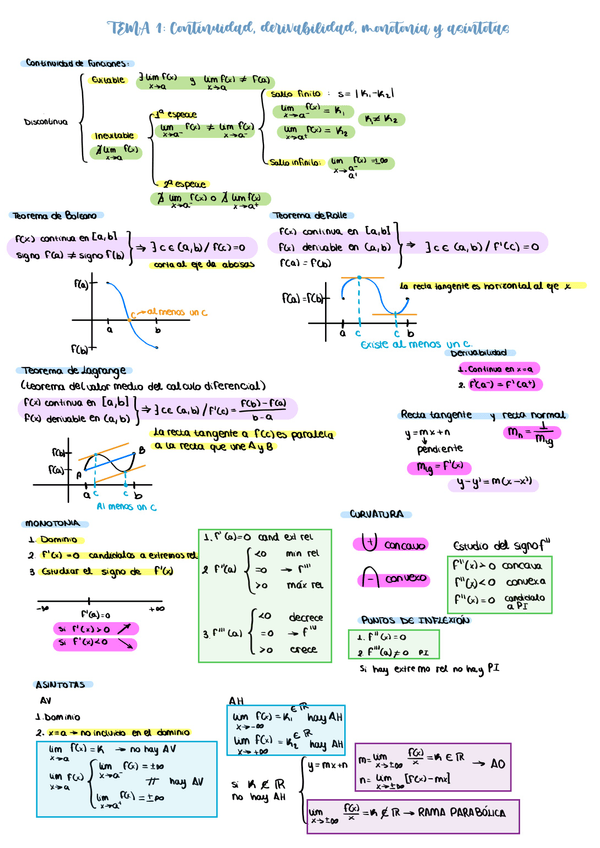 TEMA 1: Continuidad, derivabilidad, monotonía y asíntotas
Continuidad de funciones:
Discontinua
Evitable ∃ lim f(x) x→a y lim f(x) x→a ≠ f(a)
Inevitable
∄ lim f(x) x→a
1ª especie
lim f(x) x→a⁻ ≠ lim f(x) x→a⁺
Salto finito: S = |K₁-K₂|
lim f(x) = K₁ x→a⁻
lim f(x) = K₂ x→a⁺
K₁ ≠ K₂
Salto infinito: lim f(x) = ±∞ x→a⁻ a⁺
2ª especie
∄ lim f(x) x→a⁻ o ∄ lim f(x) x→a⁺
Teorema de Bolzano
f(x) continua en [a,b]
signo f(a) ≠ signo f(b)
⇒ ∃ c ∈ (a,b) / f(c)=0
corta al eje de abcisas
f(a)
c → al menos un c
a b
f(b)
Teorema de Rolle
f(x) continua en [a,b]
f(x) derivable en (a,b)
f(a) = f(b)
⇒ ∃ c ∈ (a,b) / f'(c) = 0
la recta tangente es horizontal al eje x
f(a)=f(b)
a c c b
Existe al menos un c.
Teorema de Lagrange
(teorema del valor medio del calculo diferencial)
f(x) continua en [a,b]
f(x) derivable en (a,b)
⇒ ∃ c ∈ (a,b) / f'(c) = f(b)-f(a) / b-a
la recta tangente a f(c) es paralela
a la recta que une A y B
f(b)
f(a)
A B
a c c b
Al menos un c
Derivabilidad
1. Continua en x=a
2. f'(a⁻) = f'(a⁺)
Recta tangente y recta normal
y = mx+n
pendiente
m_tg = f'(x)
y-y' = m(x-x')
MONOTONIA
1. Dominio
2. f'(x) =0 candidatos a extremos rel
3 Estudiar el signo de f'(x)
-∞ f'(a)=0 +∞
si f'(x) > 0 ↗
si f'(x) < 0 ↘
1. f'(a)=0 cand ext rel
2 f''(a)
<0 min rel
=0 → f'''
>0 máx rel
3 f'''(a)
<0 decrece
=0 → f''''
>0 crece
CURVATURA
+ concavo
- convexo
Estudio del signo f''
f''(x) > 0 concava
f''(x) < 0 convexa
f''(x) = 0 candidato
a PI
PUNTOS DE INFLEXIÓN
1. f''(x) = 0
2 f'''(a) ≠ 0 PI
Si hay extremo rel no hay PI
ASÍNTOTAS
AV
1. Dominio
2. x=a → no incluido en el dominio
lim f(x) = K x→a → no hay AV
lim f(x) x→a
lim f(x) = ±∞ x→a⁻
hay AV
lim f(x) = ±∞ x→a⁺
AH
lim f(x) = K₁ ∈ ℝ x→-∞ hay AH
lim f(x) = K₂ ∈ ℝ x→+∞ hay AH
si K ∉ ℝ
no hay AH
y = mx+n
m = lim x→±∞ f(x)/x = K ∈ ℝ
n = lim x→±∞ [f(x)-mx]
→ AO
lim x→±∞ f(x)/x = K ∉ ℝ → RAMA PARABÓLICA